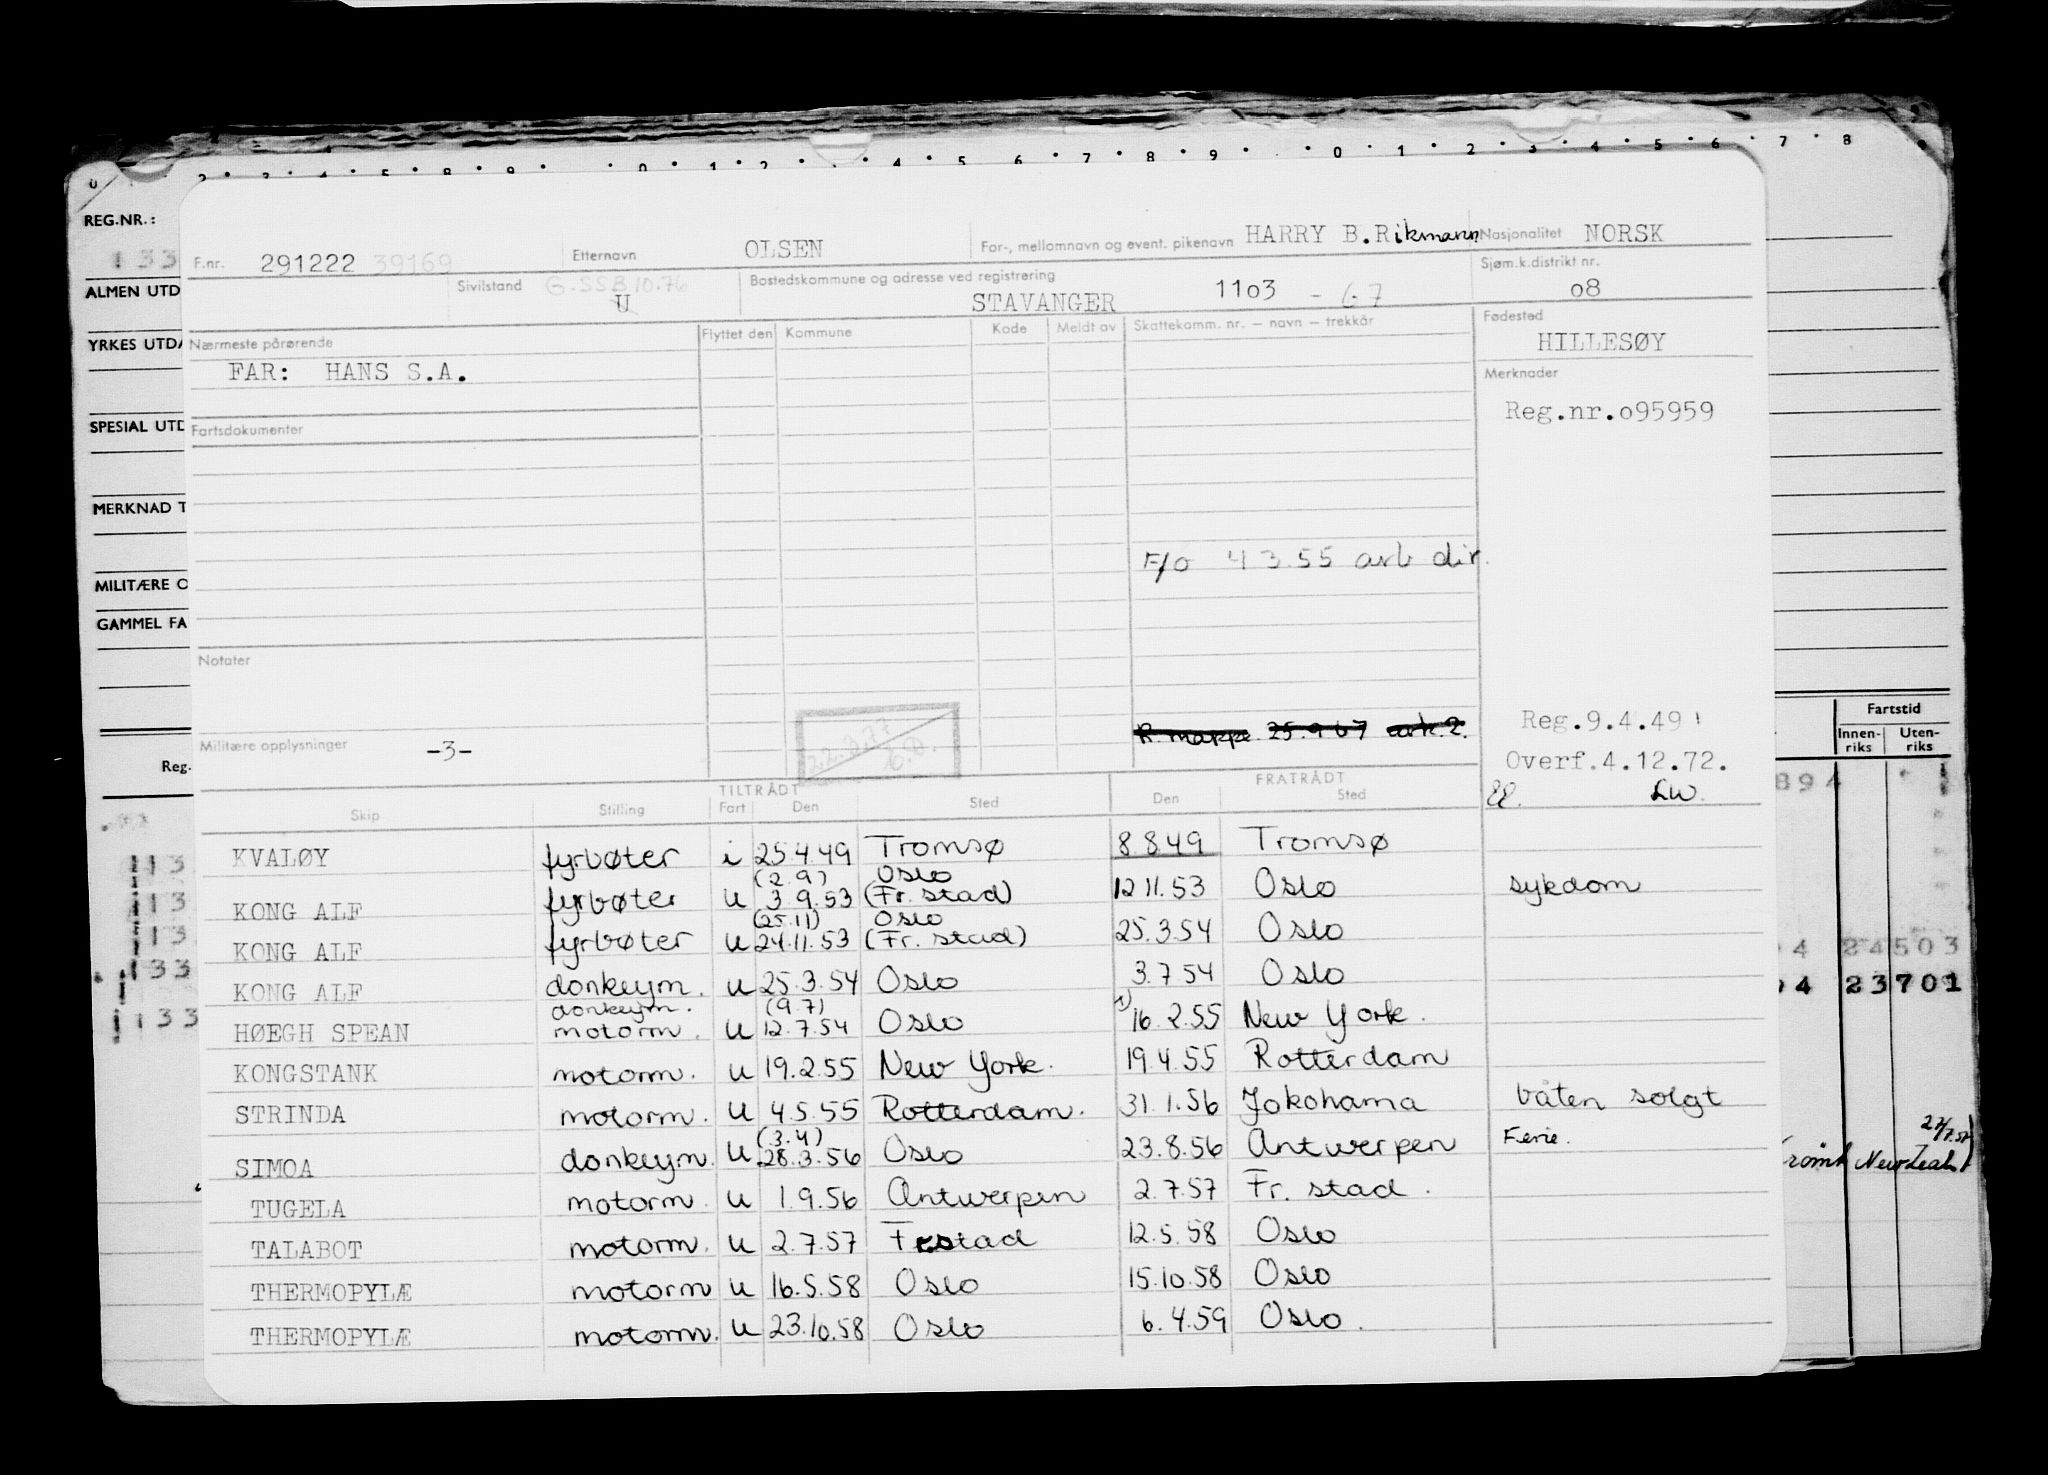 REG.NR.:
133
ALMEN UTD
YRKES UTDA
SPESIAL UTD
MERKNAD T
MILITÆRE O
GAMMEL FA
Reg.
F.nr. 291222 39169 Etternavn OLSEN For-, mellomnavn og event. pikenavn HARRY B.Rikmann Nasjonalitet NORSK
Sivilstand G.SSB 10.76 U Bostedskommune og adresse ved registrering STAVANGER 11o3 - 67 Sjøm.k.distrikt nr. o8
Nærmeste pårørende Flyttet den Kommune Kode Meldt av Skattekomm. nr. – navn – trekkår Fødested
HILLESØY
FAR: HANS S.A.
Merknader
Reg.nr.o95959
Fartsdokumenter
F/o 4 3.55 arb dir.
Notater
R. mappe. 25.9 67 ark.2.
Reg.9.4.49
Militære opplysninger -3-
Overf.4.12.72.
LW.
TILTRÅDT FRATRÅDT
Skip Stilling Fart Den Sted Den Sted
KVALØY fyrbøter i 25.4.49 Tromsø 8.8.49 Tromsø
(2.9) Oslo
KONG ALF fyrbøter u 3.9.53 (Fr. stad) 12.11.53 Oslo sykdom
(25.11) Oslo
KONG ALF fyrbøter u 24.11.53 (Fr. stad) 25.3.54 Oslo
KONG ALF donkeym. u 25.3.54 Oslo 3.7.54 Oslo
donkeym. (9.7)
HØEGH SPEAN motorm. u 12.7.54 Oslo 16.2.55 New York.
KONGSTANK motorm. u 19.2.55 New York. 19.4.55 Rotterdam
STRINDA motorm. u 4.5.55 Rotterdam. 31.1.56 Jokohama båten solgt
(3.4)
SIMOA donkeym. u 28.3.56 Oslo 23.8.56 Antwerpen Ferie.
TUGELA motorm. u 1.9.56 Antwerpen 2.7.57 Fr. stad.
TALABOT motorm. u 2.7.57 Frstad 12.5.58 Oslo
THERMOPYLÆ motorm u 16.5.58 Oslo 15.10.58 Oslo
THERMOPYLÆ motorm. u 23.10.58 Oslo 6.4.59 Oslo.
Fartstid
Innen-riks Uten-riks
894
4 24503
94 23701